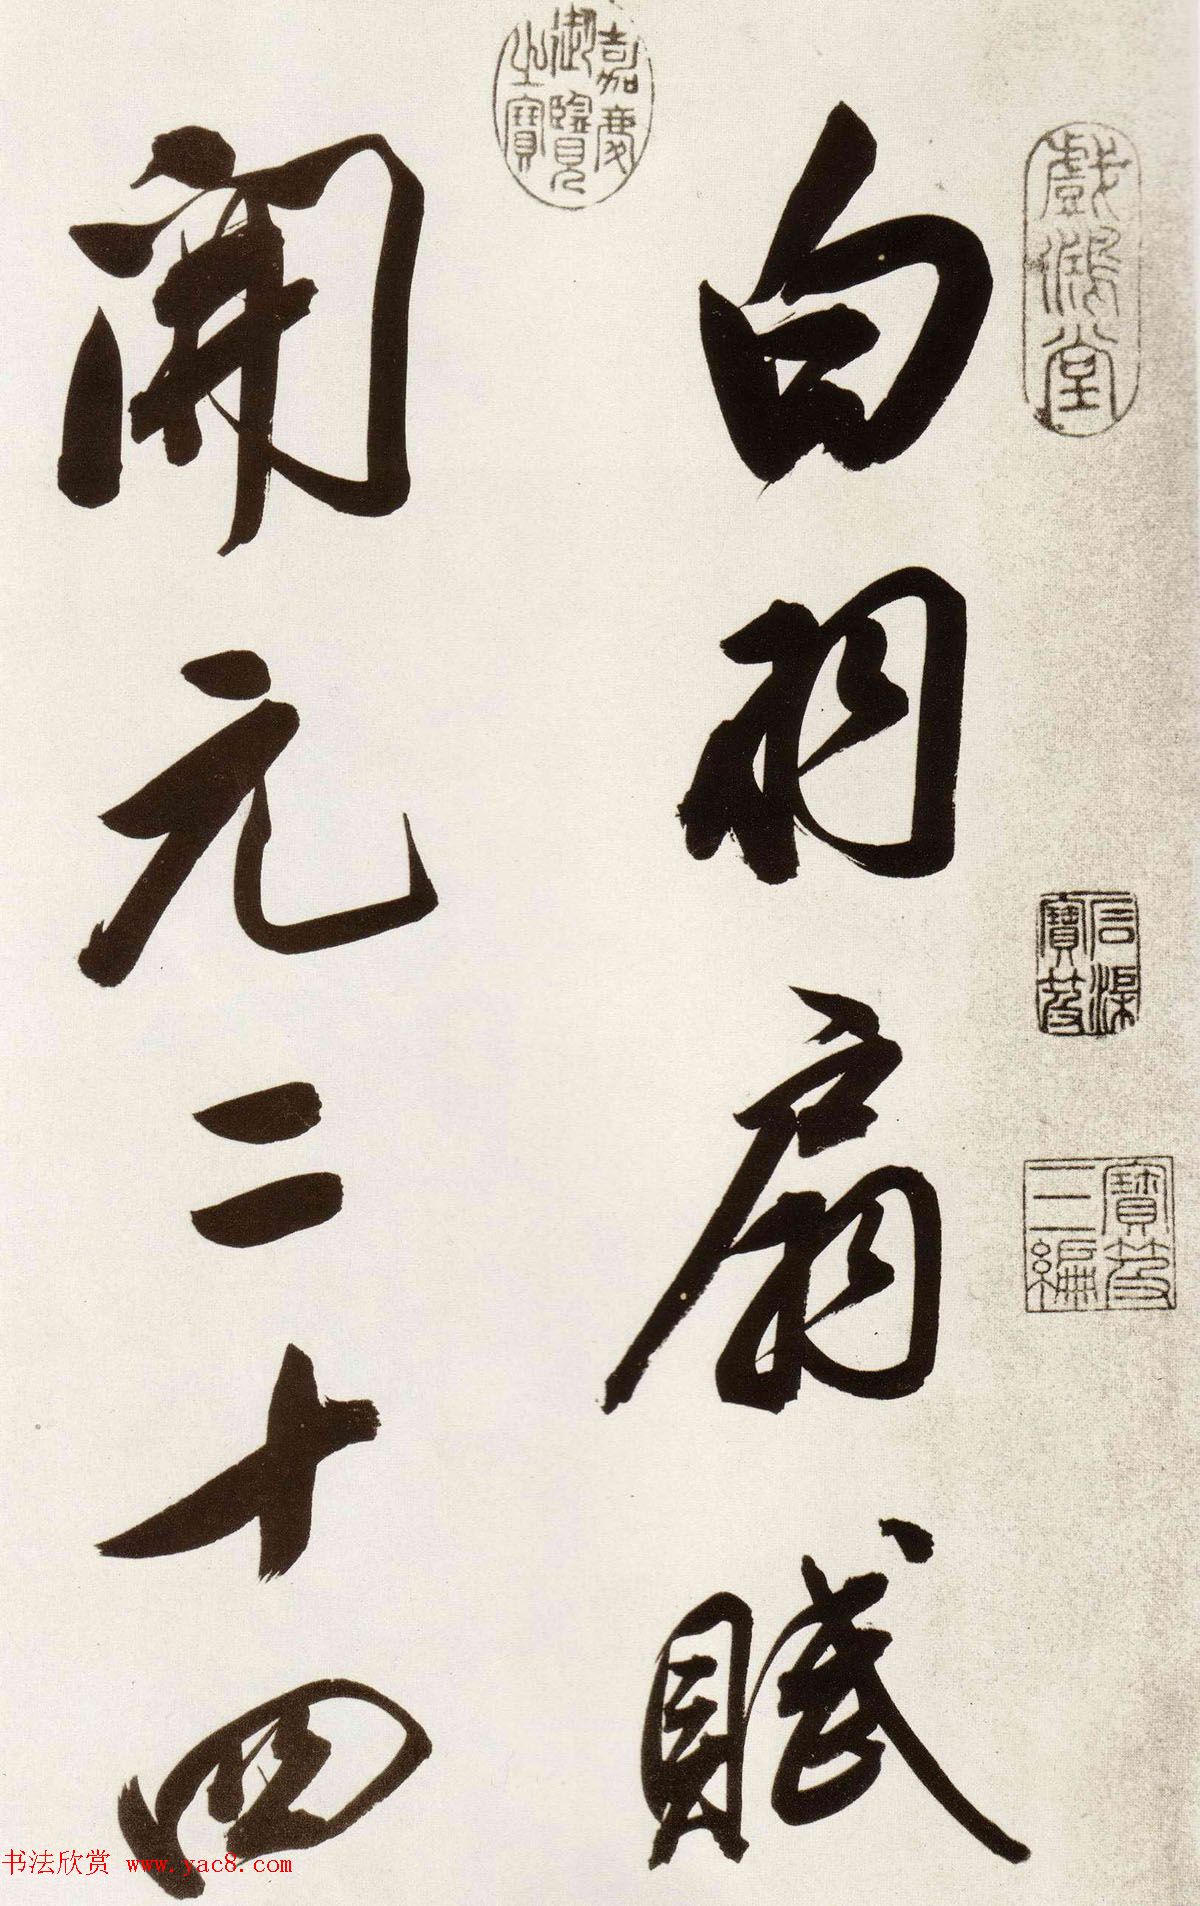 戲鴻堂
石渠寶笈
寶笈三編
白羽扇賦
嘉慶御覽之寶
開元二十四
书法欣赏 www.yac8.com